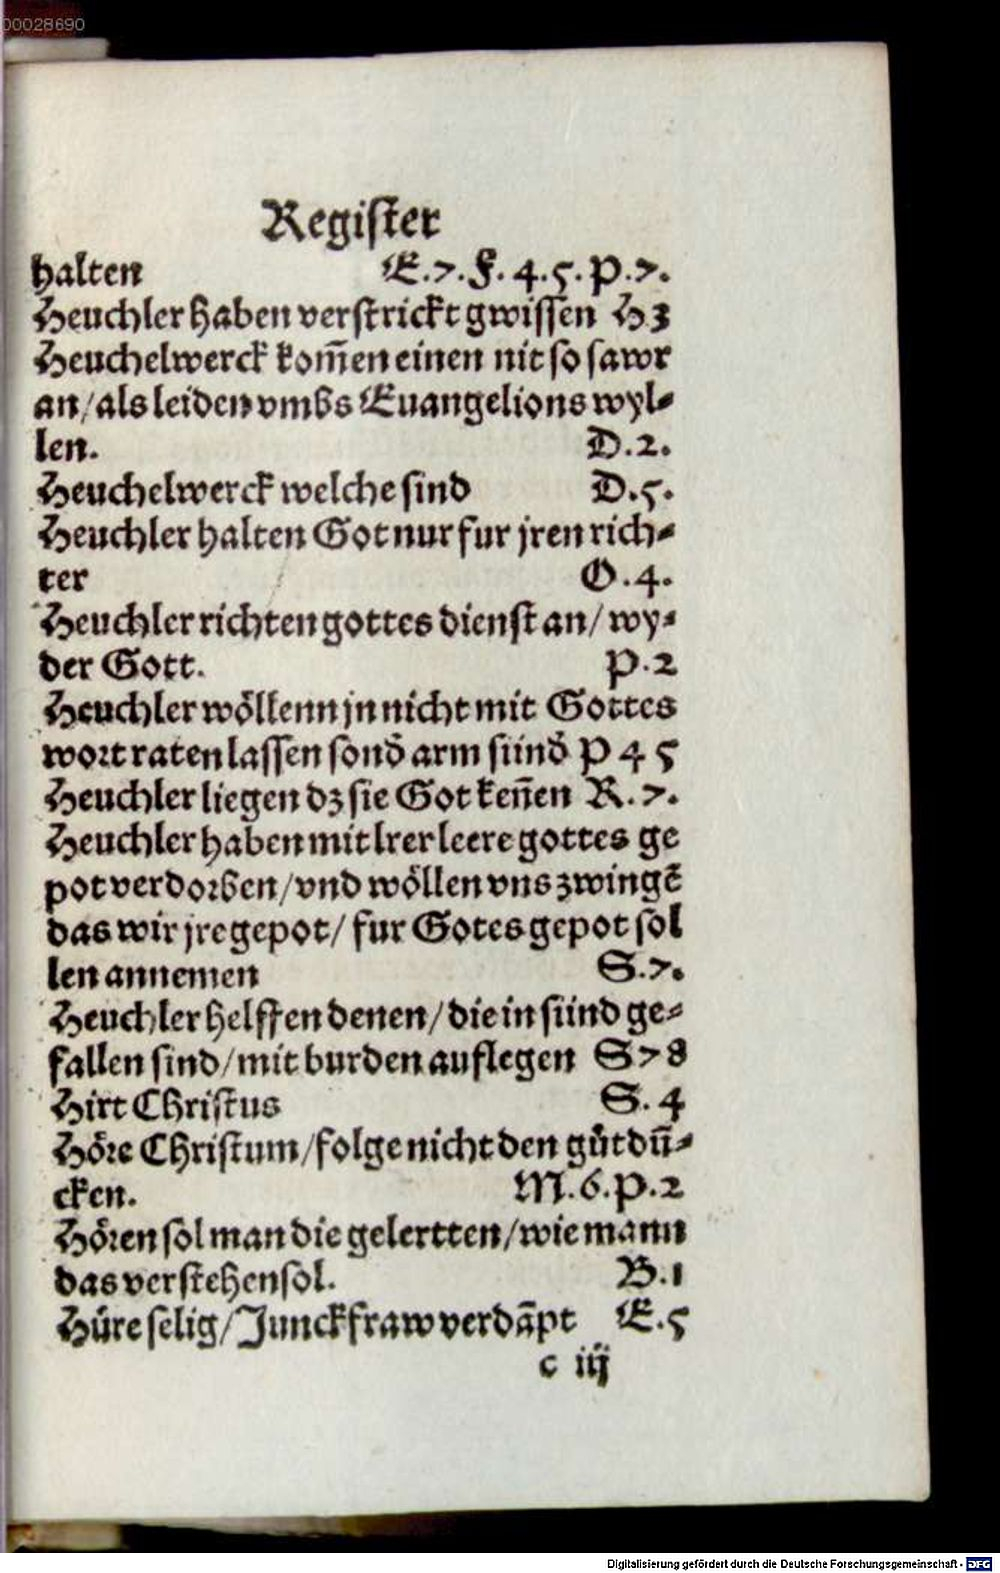 00028690
Register
halten E.7.F.4.5.P.7.
Heuchler haben verstrickt gwissen H3
Heuchelwerck kom̄en einen nit so sawr
an/als leiden vmbs Euangelions wyl⸗
len. D.2.
Heuchelwerck welche sind D.5.
Heuchler halten Got nur fur jren rich⸗
ter O.4.
Heuchler richten gottes dienst an/wy⸗
der Gott. P.2
Heuchler wöllenn jn nicht mit Gottes
wort raten lassen sond̄ arm sünd̄ P 4 5
Heuchler liegen dz sie Got ken̄en R.7.
Heuchler haben mit lrer leere gottes ge
pot verdorben/vnd wöllen vns zwingē
das wir jre gepot/fur Gotes gepot sol
len annemen S.7.
Heuchler helffen denen/die in sünd ge⸗
fallen sind/mit burden auflegen S 7 8
Hirt Christus S.4
Höre Christum/folge nicht den gůtdū⸗
cken. M.6.P.2
Hören sol man die gelertten/wie mann
das verstehen sol. B.1
Hůre selig/Junckfraw verdāpt E.5
c iij
Digitalisierung gefördert durch die Deutsche Forschungsgemeinschaft - DFG